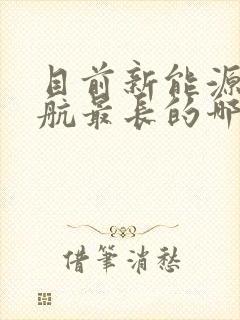 目前新能源
航最长的哪
借筆消愁